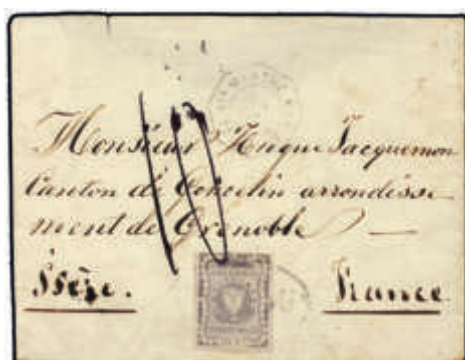 Monsieur Hugue Jacquemon
Canton de Goncelin arrondisse
ment de Grenoble —
Isère. France